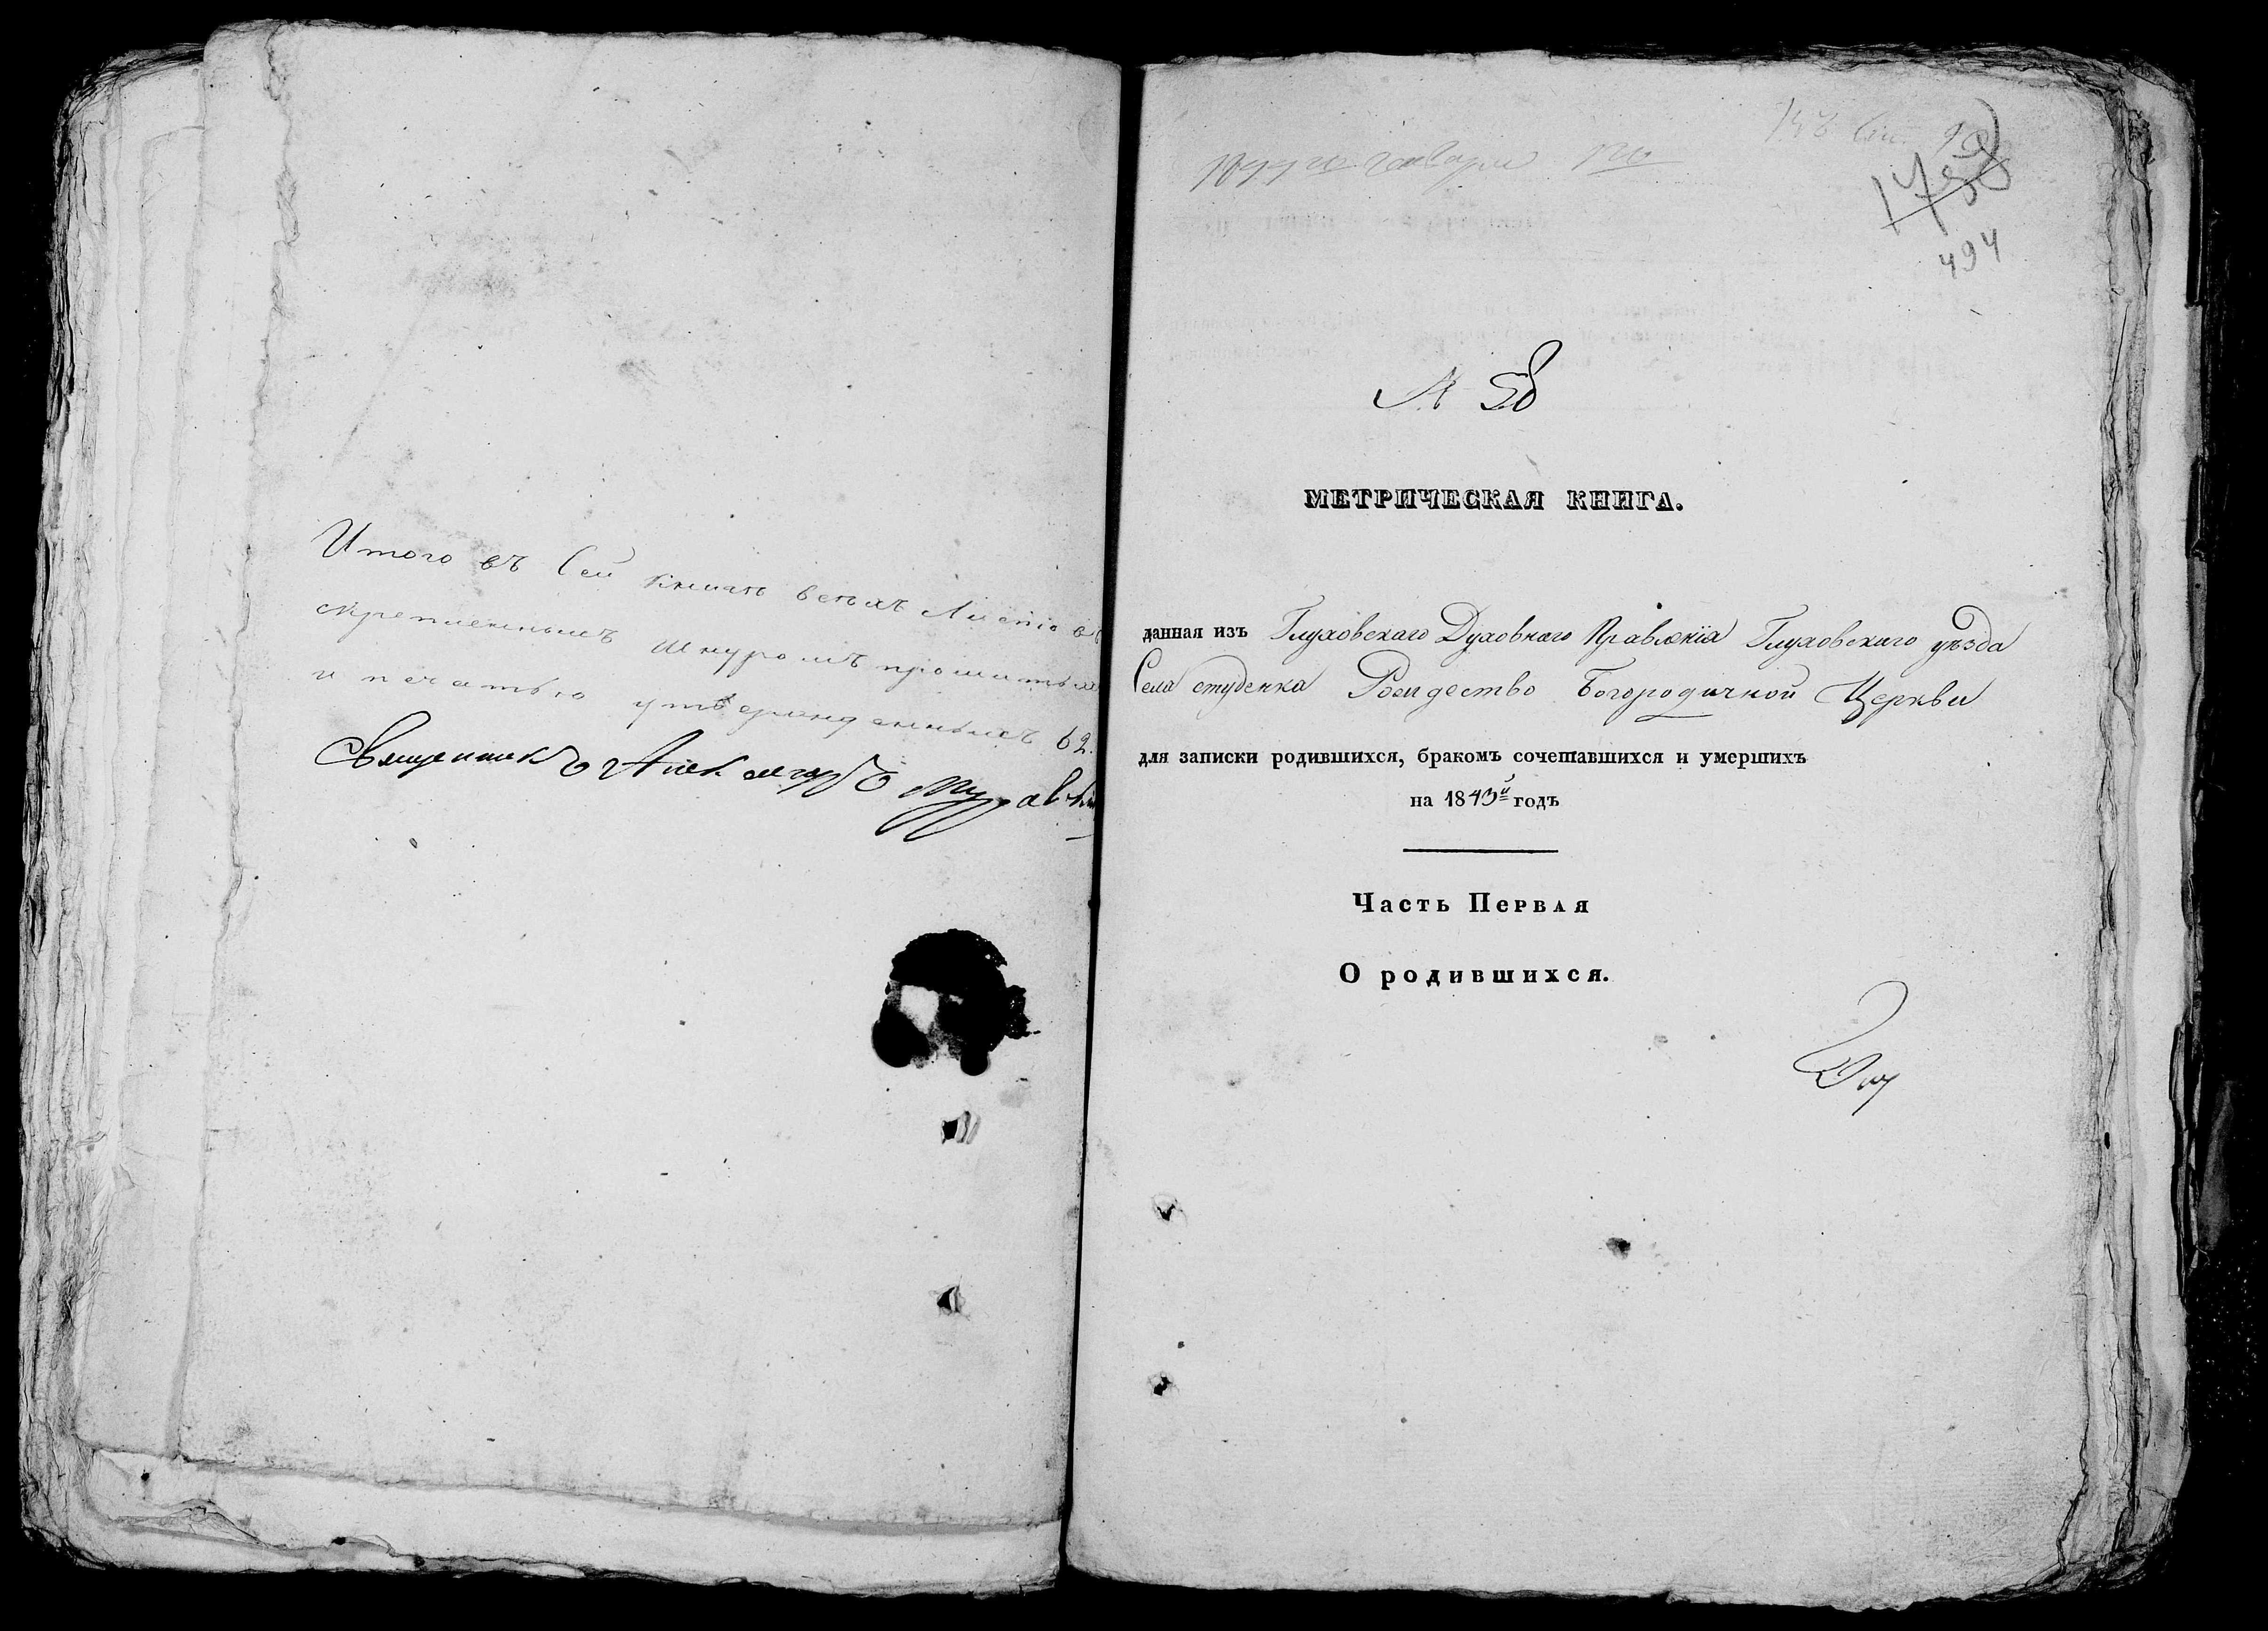 Итого въ Сей книгѣ всѣхъ Листовъ
скрепленныхъ шнуромъ прошитыхъ
и печатью утвержденныхъ 62.
Священникъ Александръ
494
№ 58
МЕТРИЧЕСКАЯ КНИГА.
данная изъ Глуховскаго Духовнаго Правленія Глуховскаго уѣзда
Села студенка Рождество Богородичной Церкви
для записки родившихся, бракомъ сочетавшихся и умершихъ
на 1843й годъ
Часть Первая
О родившихся.